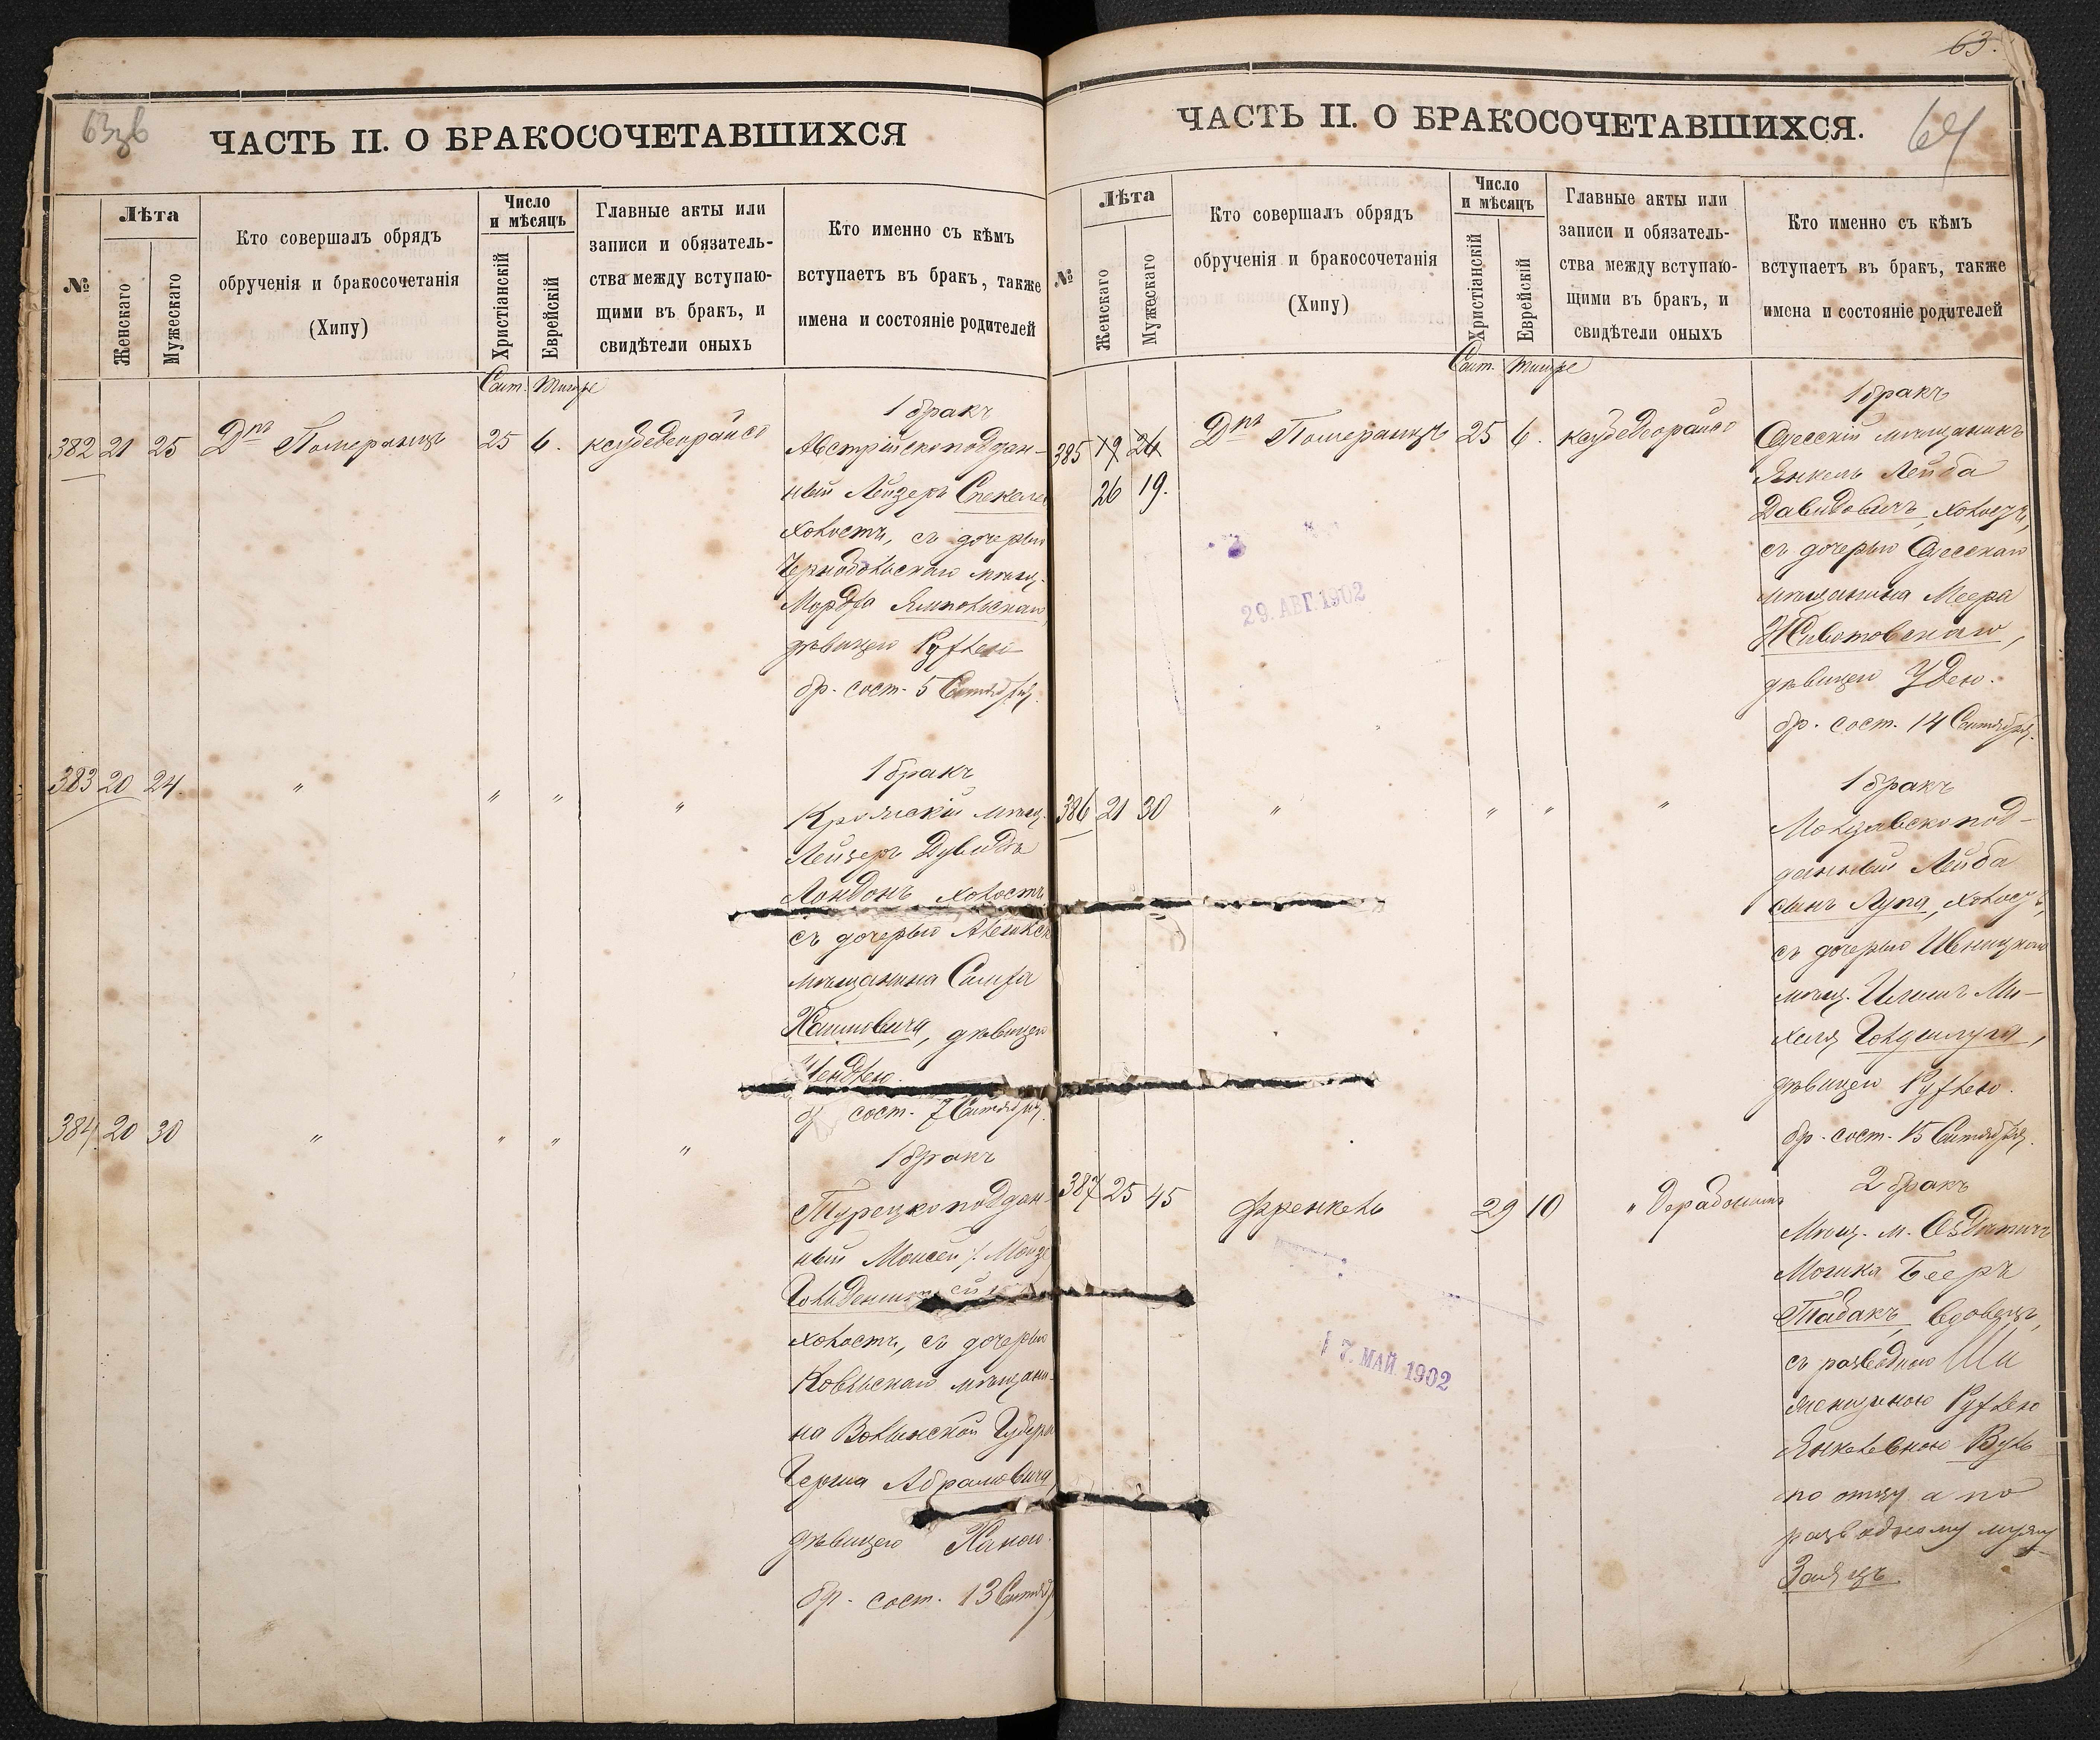 63.
64
ЧАСТЬ II. О БРАКОСОЧЕТАВШИХСЯ
№
Лѣта
Женскаго
Мужескаго
Кто совершалъ обрядъ
обрученія и бракосочетанія
(Хипу)
Число
и мѣсяцъ
Христіанскій
Еврейскій
Главные акты или
записи и обязатель-
ства между вступаю-
щими въ бракъ, и
свидѣтели оныхъ
Кто именно съ кѣмъ
вступаетъ въ бракъ, также
имена и состояніе родителей
Сент. Тишре
382 21 25 Померанцъ 25 6.
1 бракъ
Австрійскоподдан-
ный Лейзеръ
Холостъ, съ дочерью
Чернобольскаго мѣщ.
Ямпольскаго
дѣвицею Рухлею
бр. сост. 5 Сентября.
383 20 24. " " " "
1 бракъ
мѣщ.
Лейзеръ Дувидъ
Лондонъ Холостъ
съ дочерью
мѣщанина
Хаимовича, дѣвицею
сост. 7 Сентября.
384 20 30 " " " "
1 бракъ
Турецкоподдан-
ный Моисей
холостъ, съ дочерью
Ковельскаго мѣщани-
на Волынской Губерн
Герша Абрамовича
дѣвицею Ханою.
бр. сост. 13 Сентяб
ЧАСТЬ II. О БРАКОСОЧЕТАВШИХСЯ.
№
Лѣта
Женскаго
Мужескаго
Кто совершалъ обрядъ
обрученія и бракосочетанія
(Хипу)
Число
и мѣсяцъ
Христіанскій
Еврейскій
Главные акты или
записи и обязатель-
ства между вступаю-
щими въ бракъ, и
свидѣтели оныхъ
Кто именно съ кѣмъ
вступаетъ въ бракъ, также
имена и состояніе родителей
Сент. Тишре
385 19 24 Померанцъ 25 6.
26 19.
1 бракъ
Одесскій мѣщанинъ
Янкель Лейба
Давидовичъ, холостъ,
съ дочерью Одесскаго
мѣщанина Меера
Животовскаго,
дѣвицею Удею.
бр. сост. 14 Сентября.
29. АВГ. 1902
386 21 30 " " " "
1 бракъ
Молдавскопод-
данный Лейба
сынъ Лупа, холостъ,
съ дочерью Ивницкаго
мѣщ. Ми-
хеля
дѣвицею Рухлею.
бр. сост. 15 Сентября.
387 25 45 Френкель 29 10
2 бракъ
Мѣщ. м.
Мошка Бееръ
Табакъ, вдовецъ,
съ разводною
женщиною Рухлею
Янкелевною
по отцу а по
разводному мужу
Заяцъ
17. МАЙ 1902